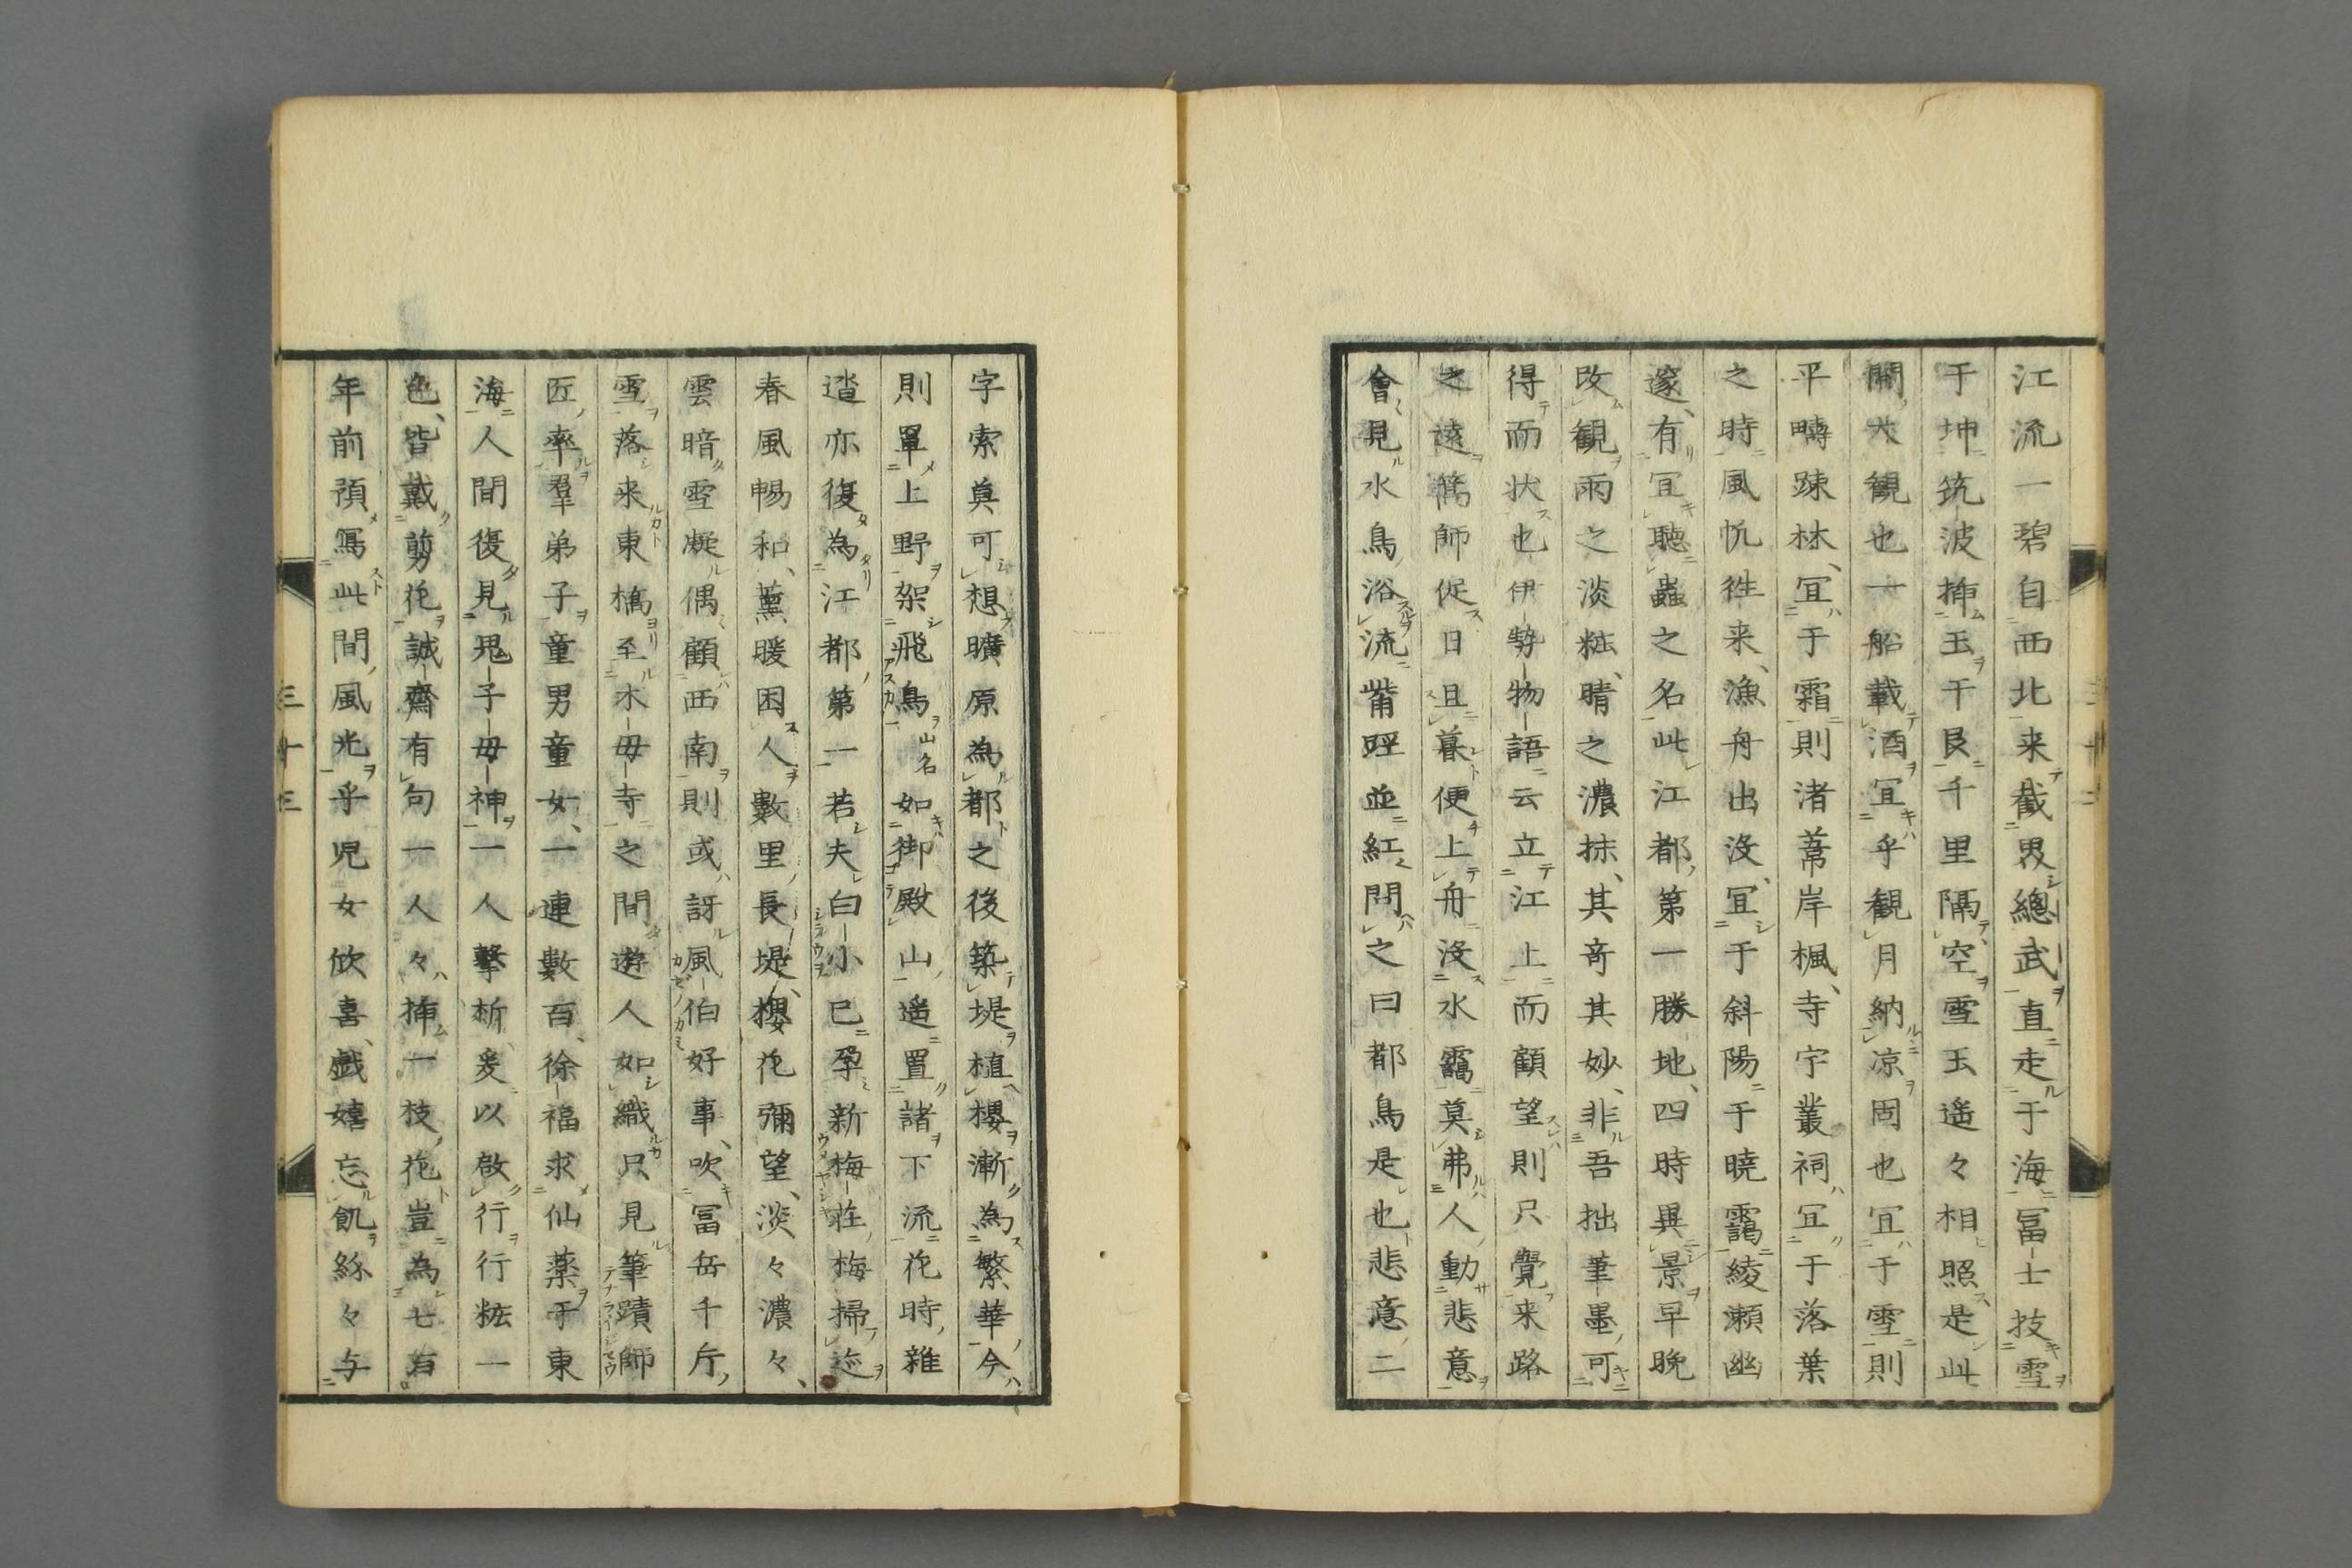 江流一碧自西北来截界總武直走于海冨士技雪
于坤筑波挿玉于艮千里隔空雪玉遥々相照是此
開大観也一船載酒冝乎観月納凉固也冝于雪則
平疇踈林冝于霜則渚葦岸楓寺宇叢祠冝于落葉
之時風帆徃来漁舟出没冝于斜陽于暁靄綾瀬幽
邃有冝聴蟲之名此江都第一勝地四時異景早晩
改観雨之淡粧晴之濃抹其竒其妙非吾拙筆墨可
得而状也伊勢物語云立江上而顧望則只覺来路
之遠篙師促日且暮便上舟没水靄莫弗人動悲意
會見水鳥浴流觜脛並紅問之曰都鳥是也悲意二
字索莫可想曠原為都之後築堤植櫻漸為繁華今
則單上野架飛鳥山名如御殿山遥置諸下流花時雜
遝亦復為江都第一若夫白小已孕新梅荘梅掃迹
春風暢和薫暖困人數里長堤櫻花彌望淡々濃々
雲暗雪凝偶顧西南則或訝風伯好事吹冨岳千斤
雪落来東橋至木毋寺之間遊人如織只見筆蹟師
匠率羣弟子童男童女一連數百徐福求仙薬于東
海人間復見鬼子毋神一人擊柝爰以啟行行粧一
色皆戴剪花誠齋有句一人々挿一枝花豈為七百
年前預寫此間風光乎児女欣喜戯嬉忘飢絲々与
三十三